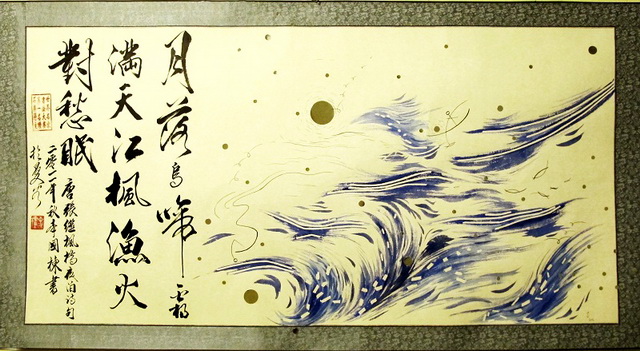 月落烏啼霜
滿天江楓漁火
對愁眠
唐張繼楓橋夜泊詩句
二零一一年秋李國棟書
於